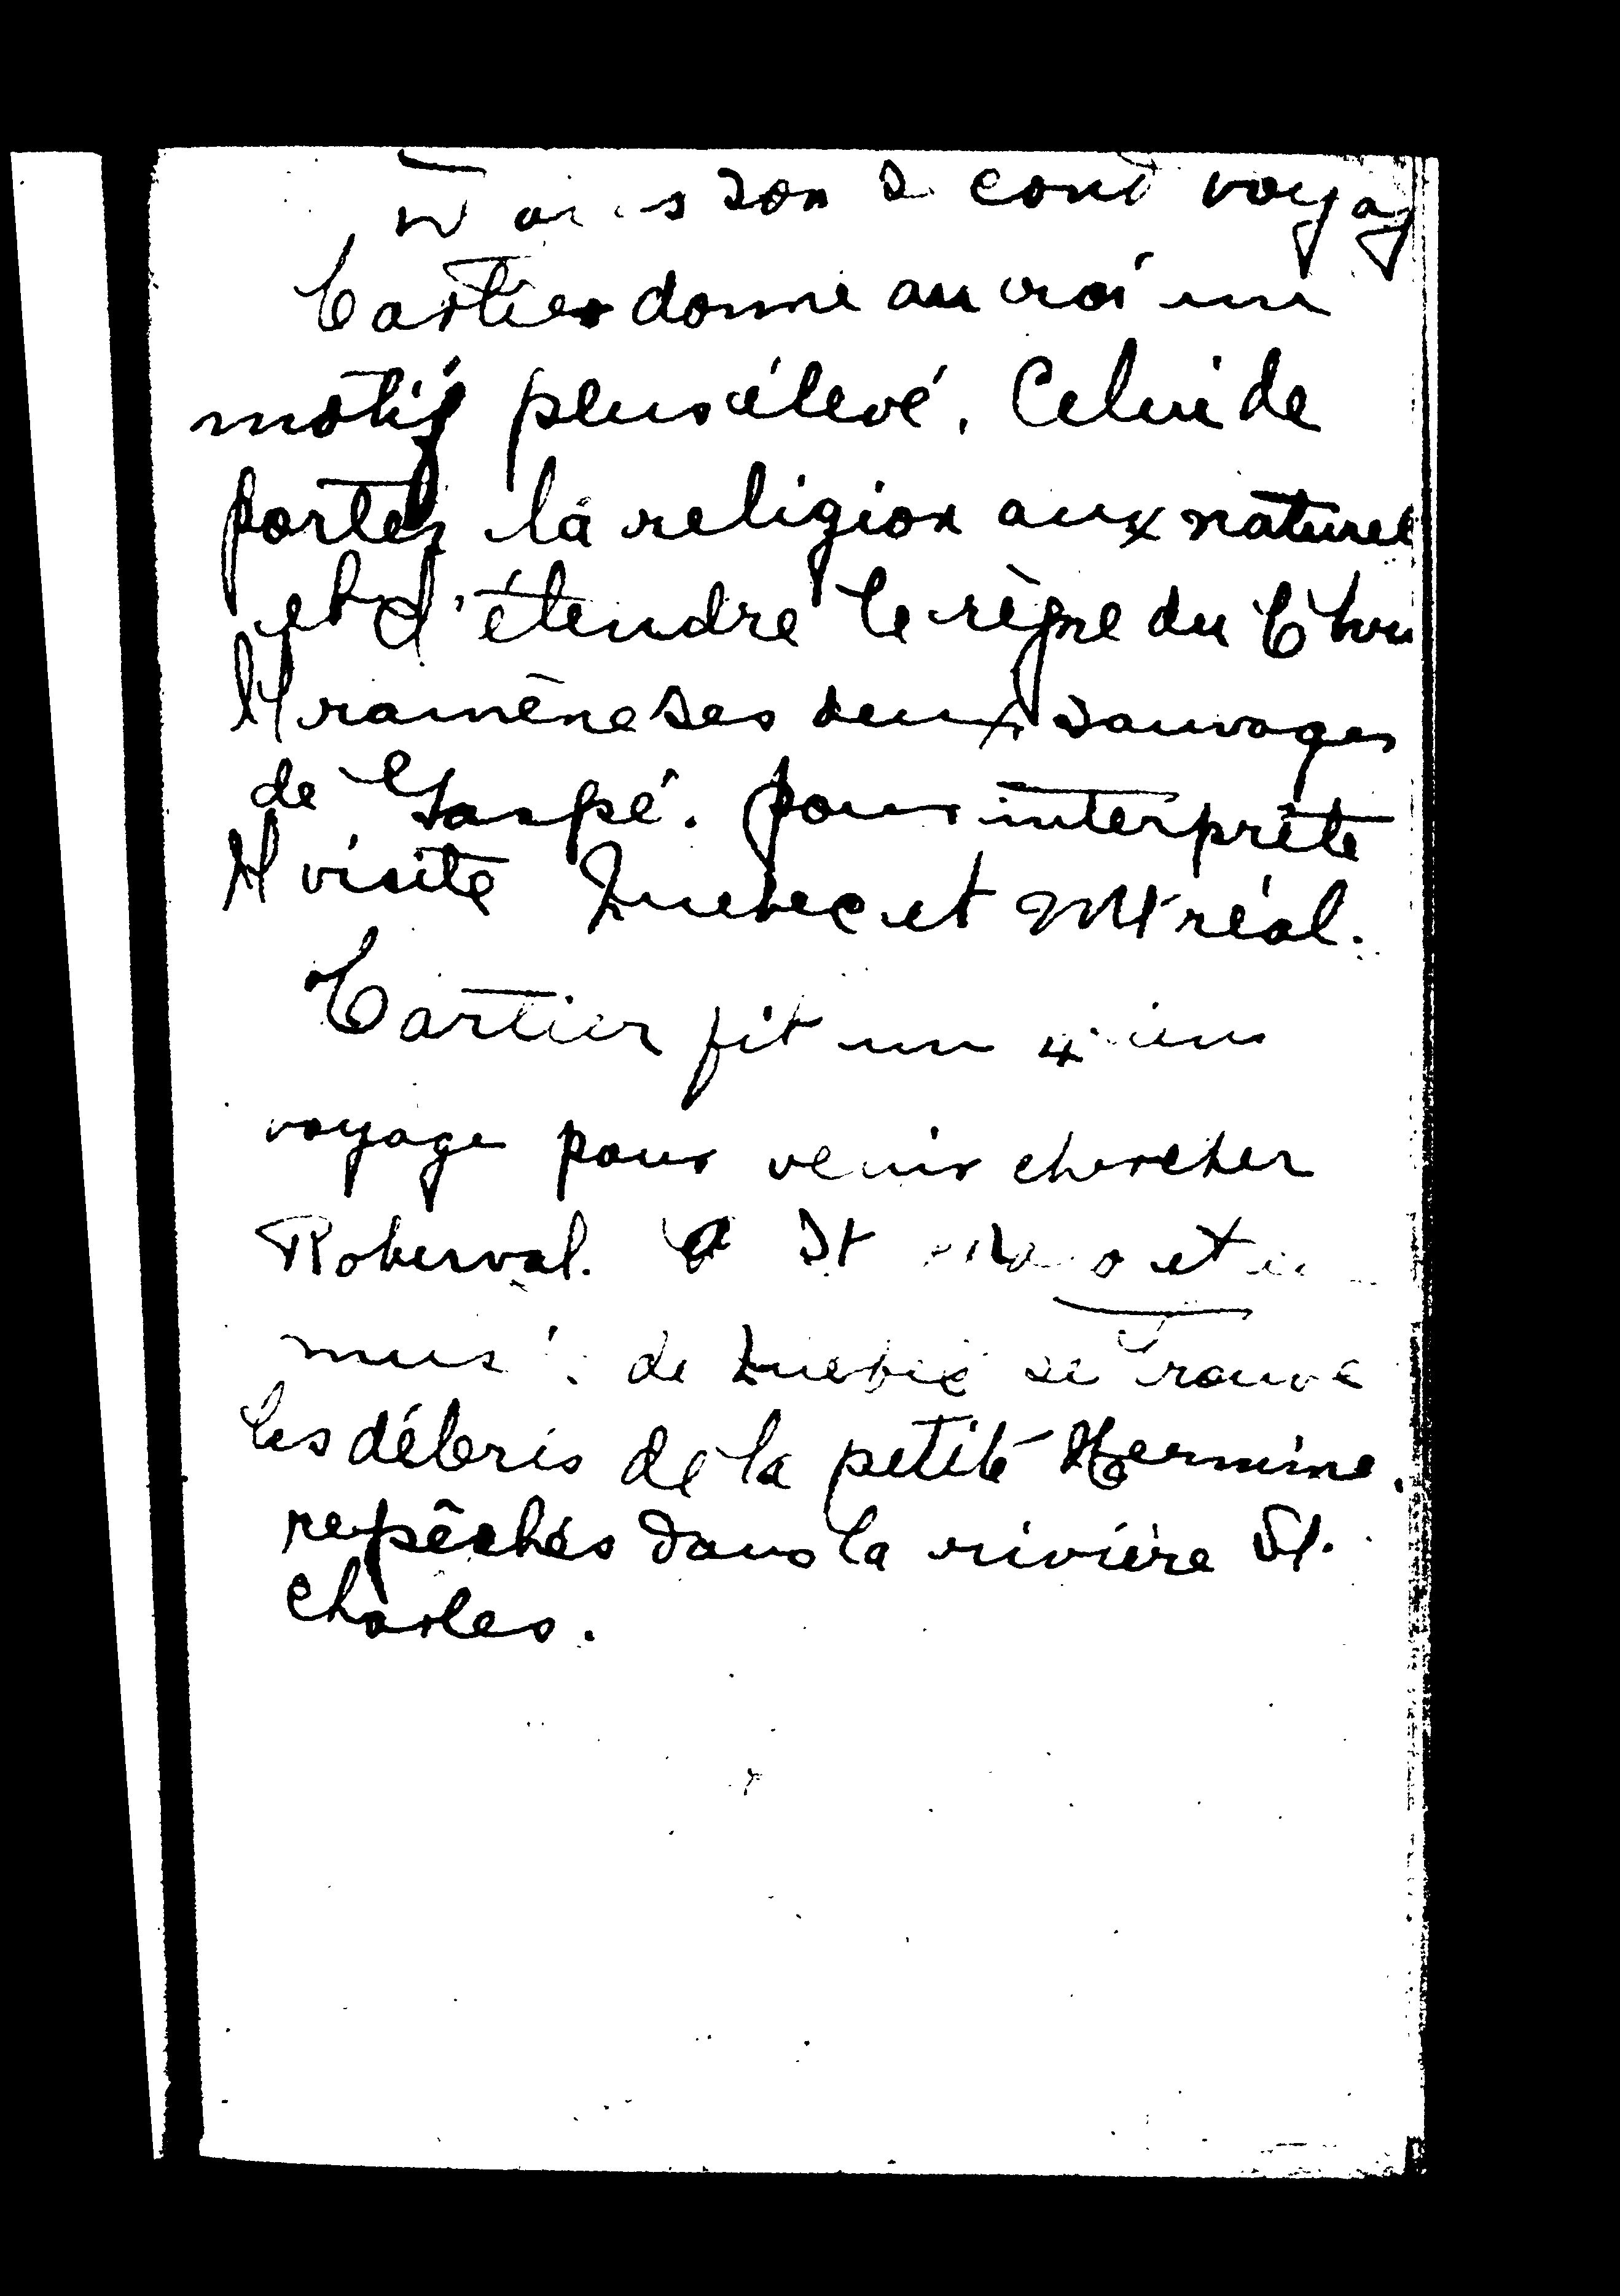 Dans son second voyag
Cartier donne au roi un
motif plus élevé. Celui de
porter la religion aux naturel
et d'étendre le règne du Chri
Il ramène ses deux sauvages
de Gaspé. pour interprète
Il visite Quebec et Mtréal.
Cartier fit un 4ième
voyage pour venir chercher
Roberval. A St Malo et au
musée de Quebec se trouve
les débris de la petite Hermine.
repêchés dans la rivière St.
Charles.